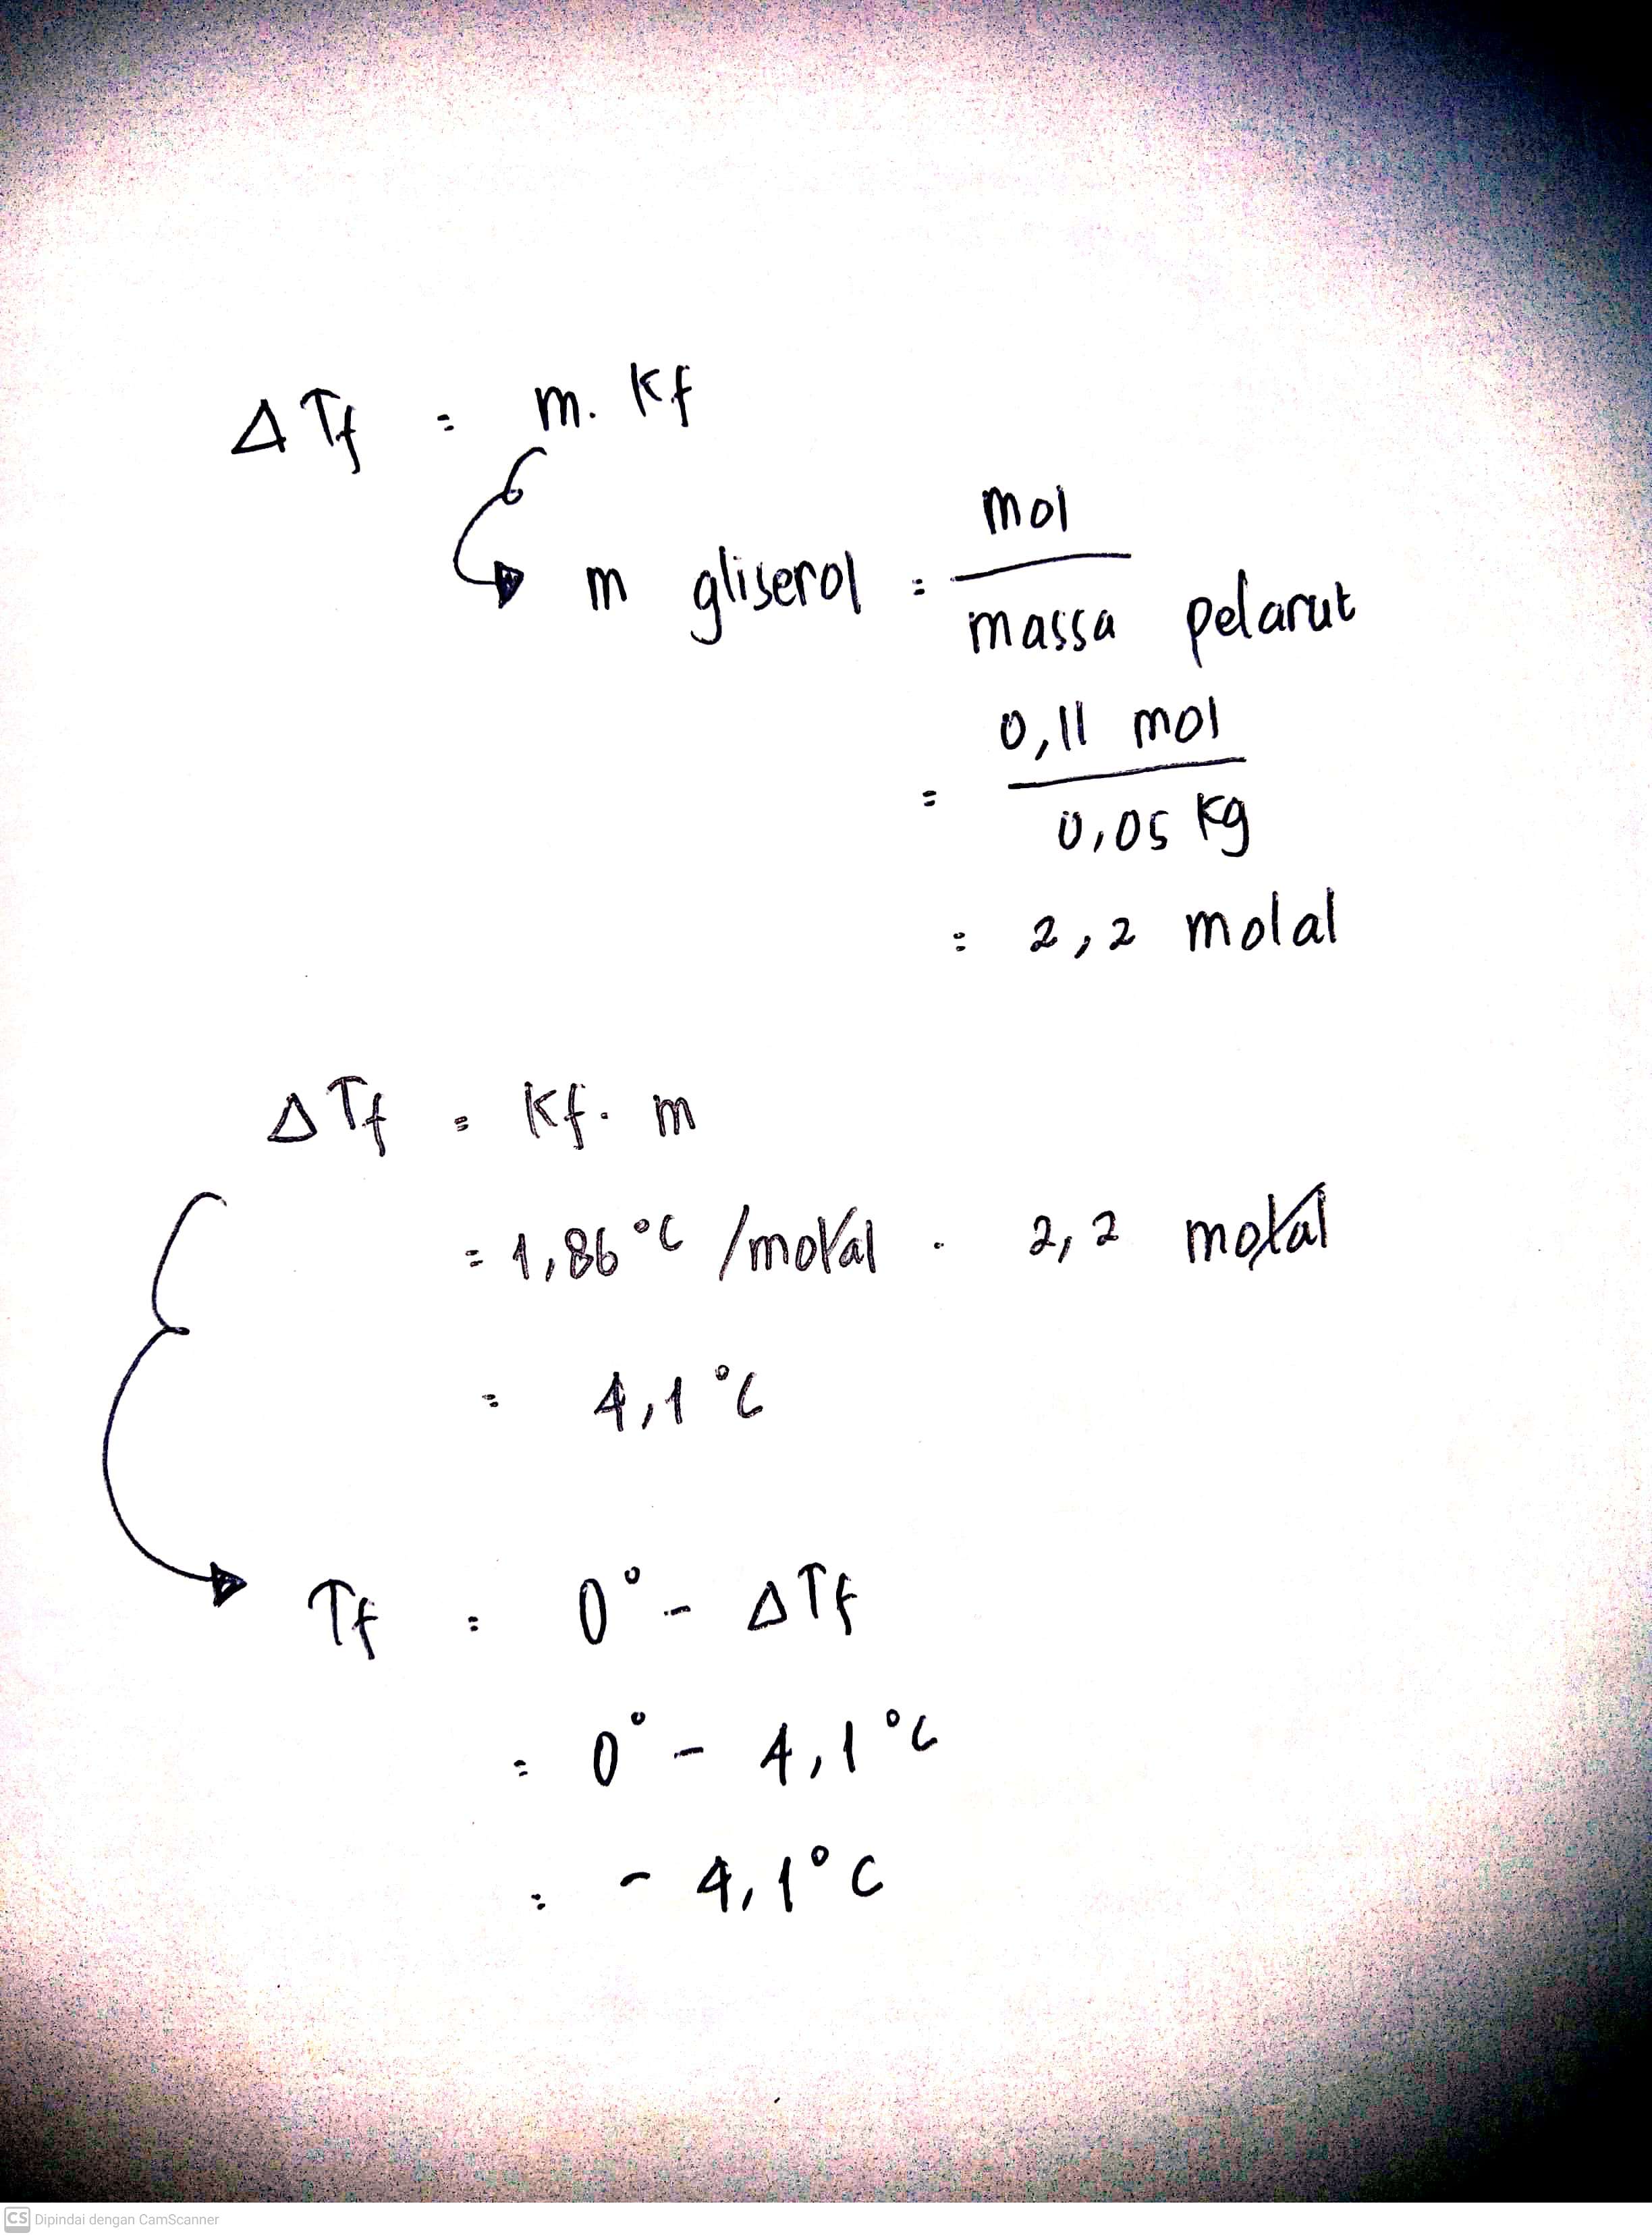 ΔTf = m. Kf
m gliserol = mol / massa pelarut
= 0,11 mol / 0,05 kg
= 2,2 molal
ΔTf = Kf. m
= 1,86 °C /molal . 2,2 molal
= 4,1 °C
Tf = 0° - ΔTf
= 0° - 4,1 °C
= - 4,1 °C
CS Dipindai dengan CamScanner